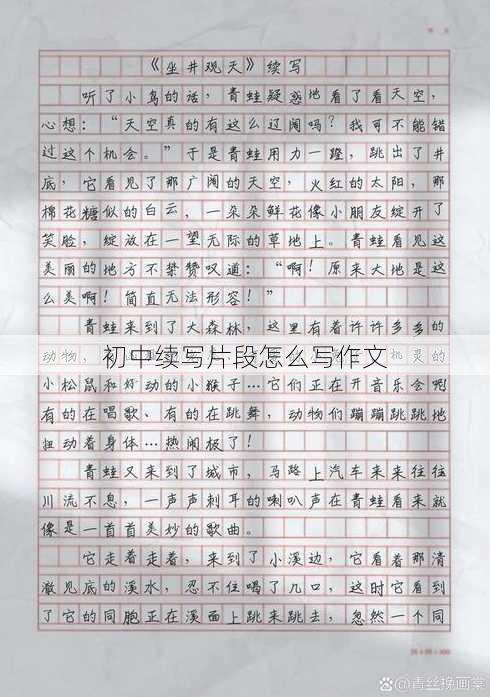 《坐井观天》续写
听了小鸟的话，青蛙疑惑地看了看天空，
心想：“天空真的有这么辽阔吗？我可不能错
过这个机会。”于是青蛙用力一蹬，跳出了井
底，它看见了那广阔的天空，火红的太阳，那
棉花糖似的白云，一朵朵鲜花像小朋友绽开了
笑脸，绽放在一望无际的草地上。青蛙看见这
美丽的地方不禁赞叹道：“啊！原来大地是这
么美啊！简直无法形容！”
青蛙来到了大森林，这里有着许许多多的
动物，
初中续写片段怎么写作文
机灵的
小松鼠和好动的小猴子…它们正在开音乐会呢！
有的在唱歌、有的在跳舞，动物们蹦蹦跳跳地
扭动着身体…热闹极了！
青蛙又来到了城市，马路上汽车来来往往
川流不息，一声声刺耳的喇叭声在青蛙看来就
像是一首首美妙的歌曲。
它走着走着，来到了小溪边，它看着那清
澈见底的溪水，忍不住喝了几口，这时它看到
了它的同胞正在溪面上跳来跳去，忽然一个同
@青丝挽画棠